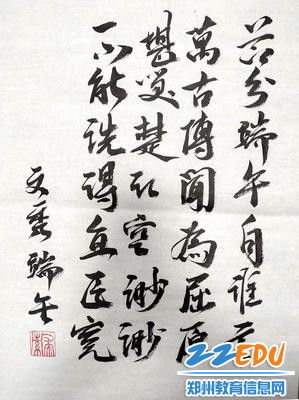 节分端午自谁言
萬古傳聞為屈原
堪笑楚江空渺渺
不能洗得直臣冤
文秀端午
ZZEDU
郑州教育信息网